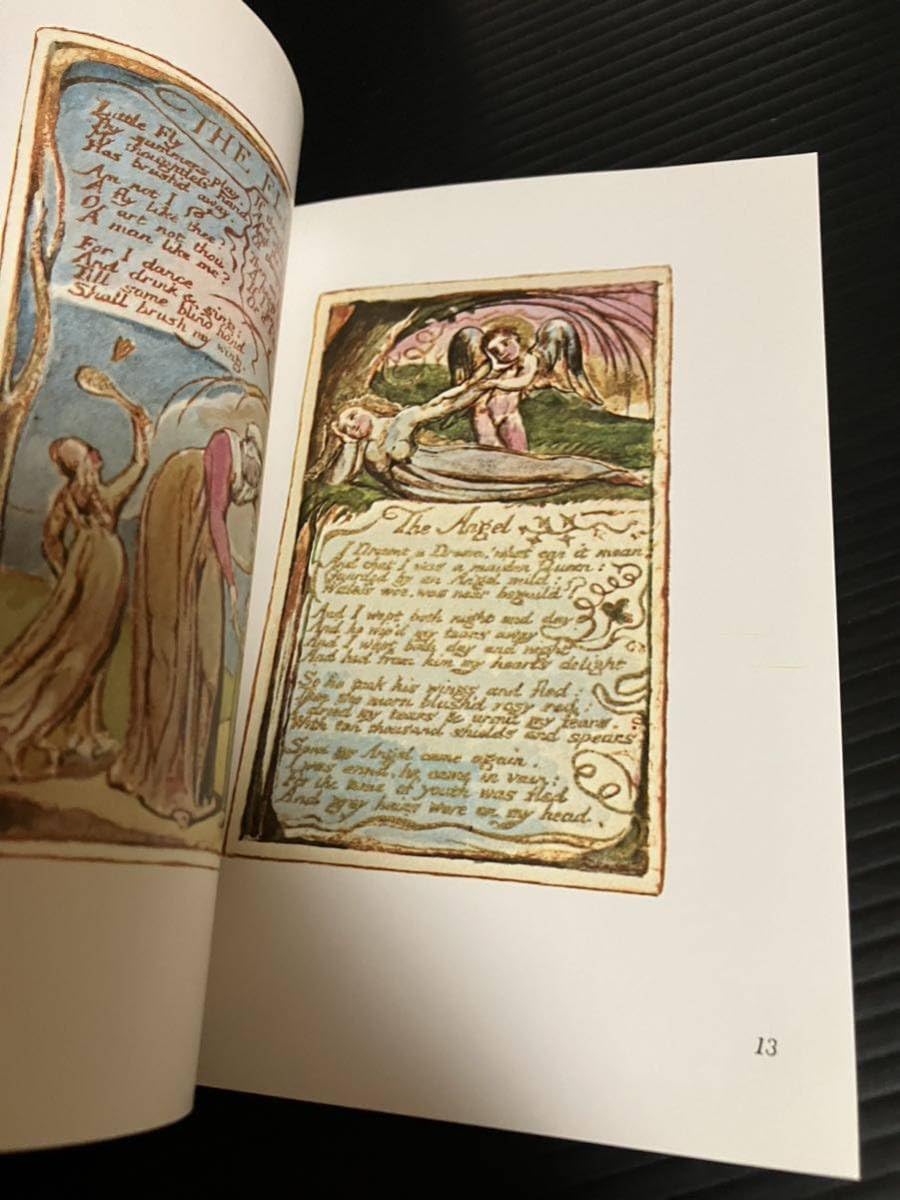 THE F
Little Fly
Thy summers play,
My thoughtless hand
Has brush'd away.
Am not I
A fly like thee?
Or art not thou
A man like me?
For I dance
And drink & sing;
Till some blind hand
Shall brush my wing.
The Angel
I Dreamt a Dream! what can it mean?
And that I was a maiden Queen:
Guarded by an Angel mild:
Witless woe, was neer beguil'd!
And I wept both night and day
And he wip'd my tears away
And I wept both day and night
And hid from him my hearts delight
So he took his wings and fled:
Then the morn blush'd rosy red:
I dried my tears & armd my fears,
With ten thousand shields and spears.
Soon my Angel came again:
I was arm'd, he came in vain:
For the time of youth was fled
And grey hairs were on my head.
13